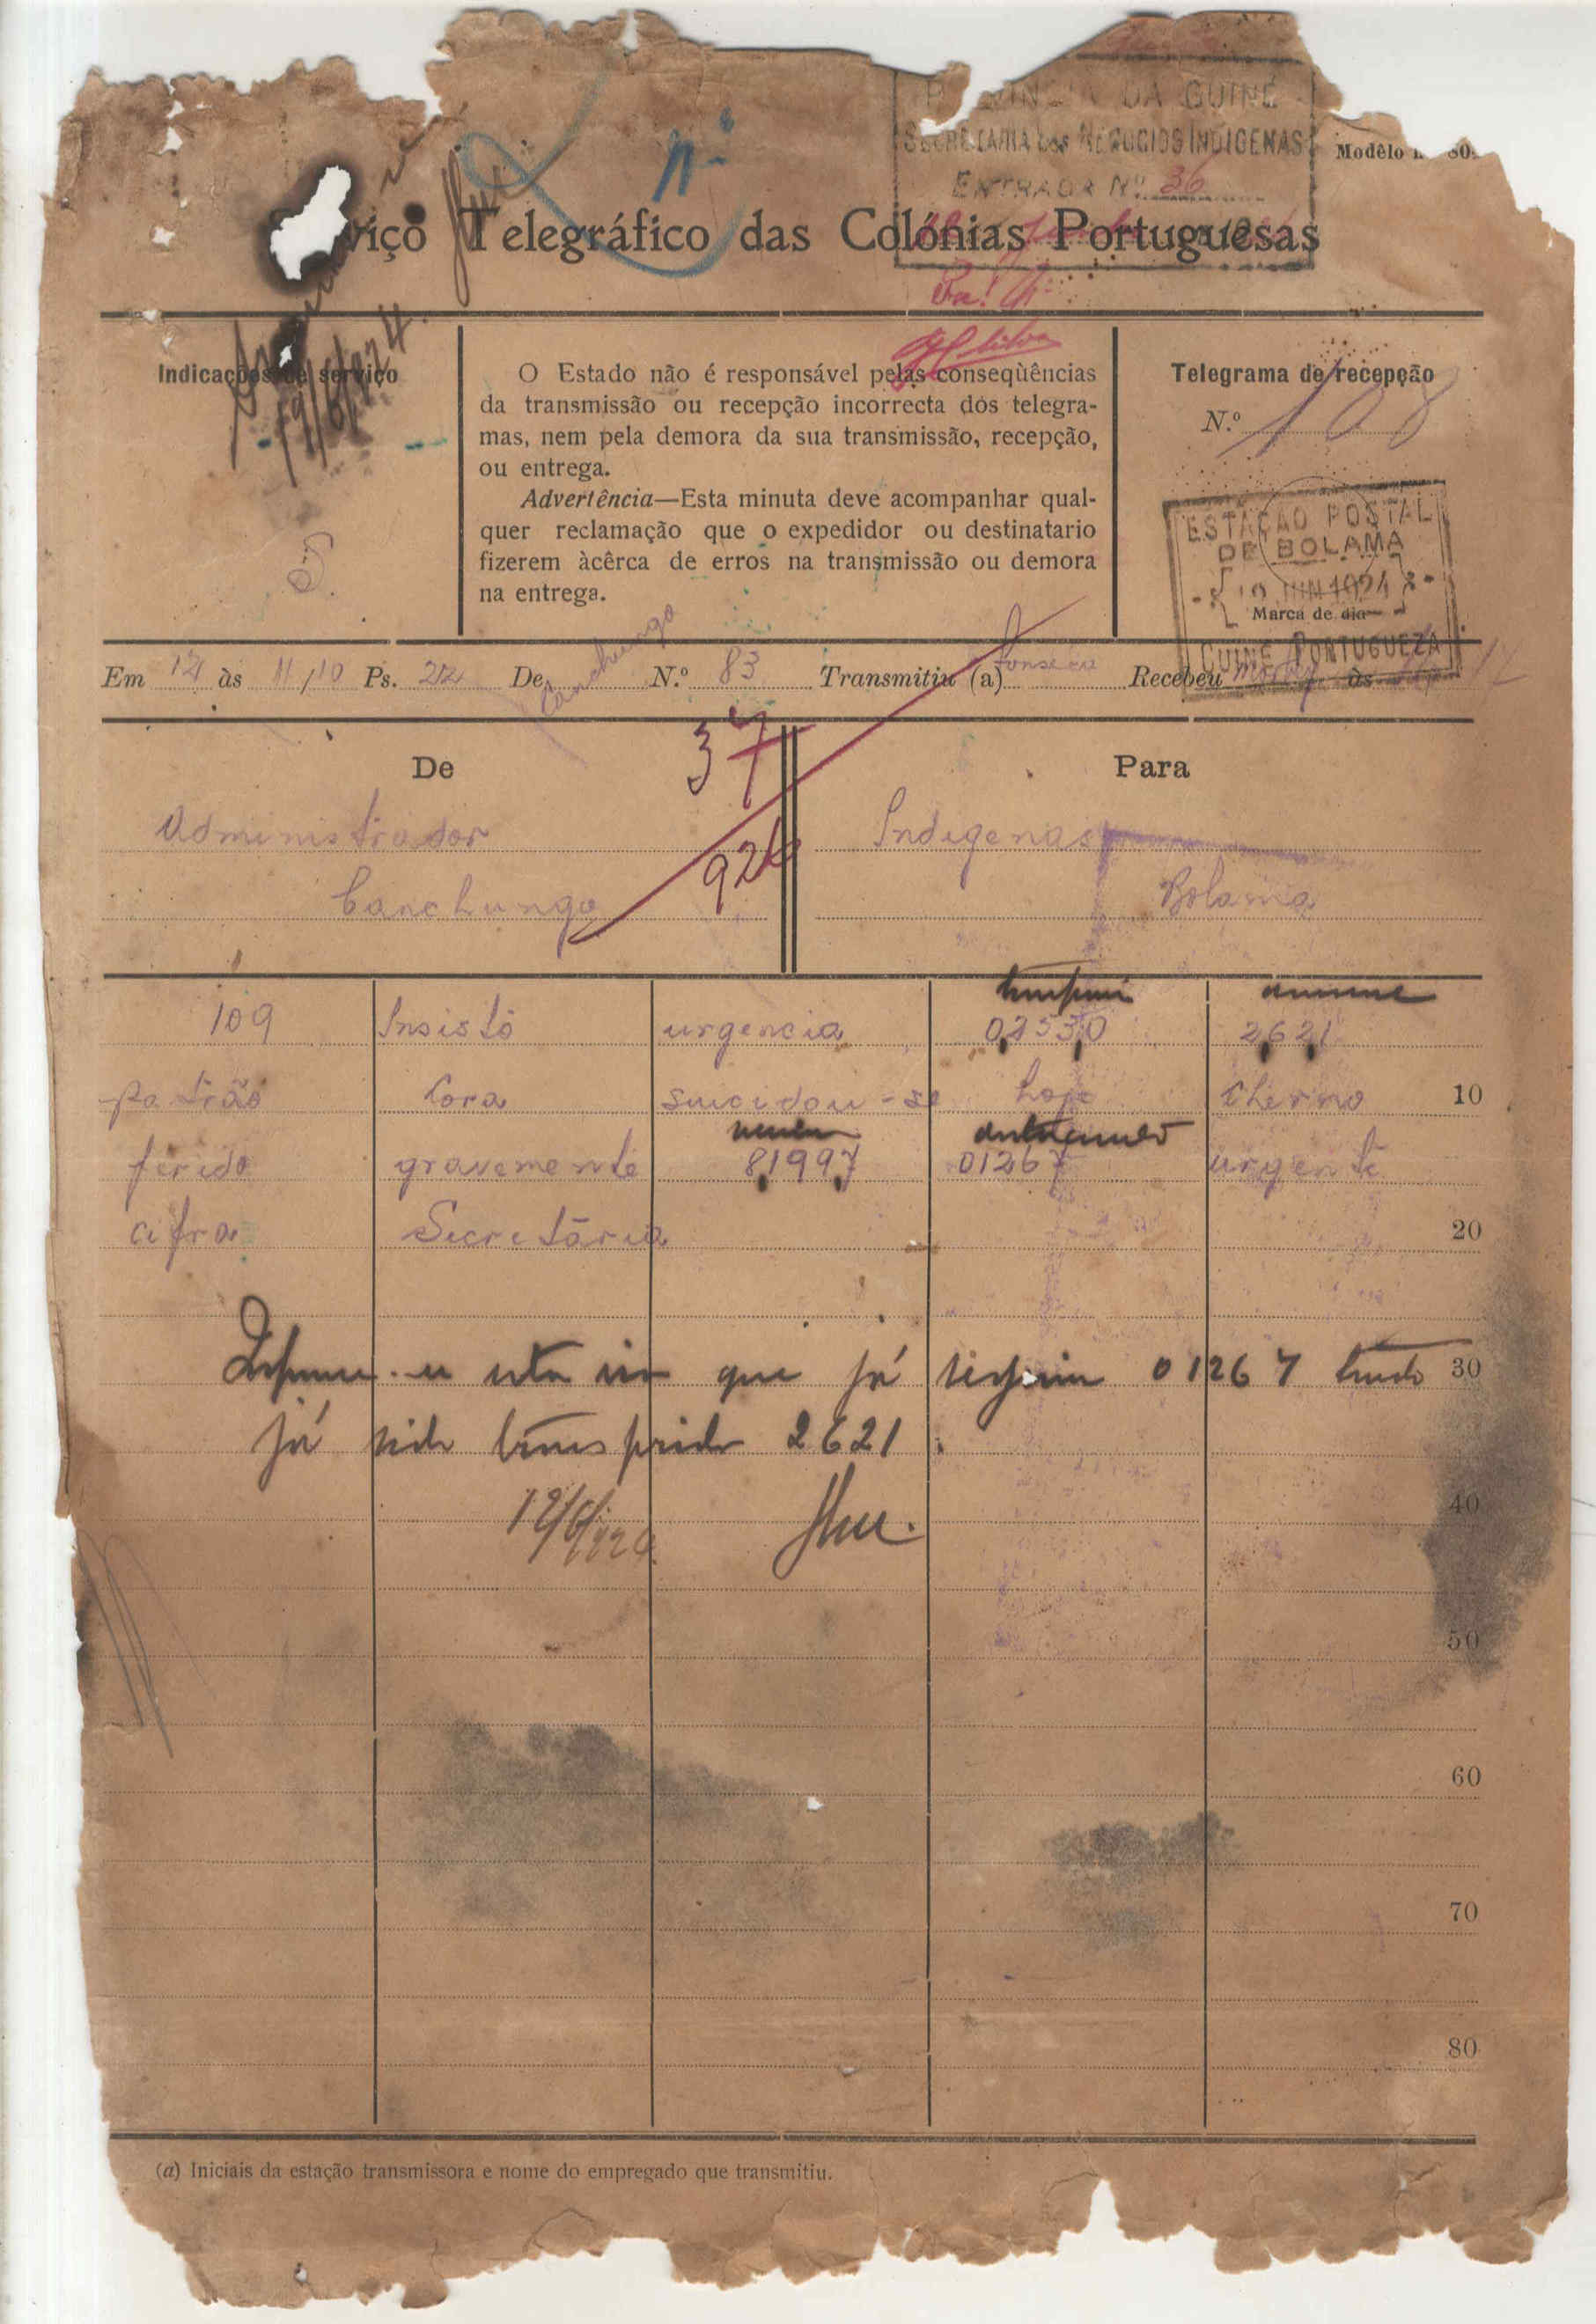 DA GUINÉ
SECRETARIA DOS NEGOCIOS INDIGENAS
ENTRADA Nº 36
Modêlo
viço Telegráfico das Colónias Portuguesas
Indicações de serviço
19/6/924
O Estado não é responsável pelas conseqùências
da transmissão ou recepção incorrecta dos telegra-
mas, nem pela demora da sua transmissão, recepção,
ou entrega.
Advertência—Esta minuta deve acompanhar qual-
quer reclamação que o expedidor ou destinatario
fizerem àcêrca de erros na transmissão ou demora
na entrega.
Telegrama de recepção
N.º 108
ESTAÇÃO POSTAL
DE BOLAMA
JUN 1924
Marca de dia
GUINÉ PORTUGUEZA
Em 12 às 11/10 Ps. 22 De Canchungo N.º 83 Transmitiu (a) Fonseca Recebeu às
37
924
De
Para
Administrador
Canchungo
Indigenas
Bolama
109 Insisto urgencia 02530 2621
patrão Cora suicidou-se hoje Cherno 10
ferido gravemente 81997 01267 urgente
cifra Secretária 20
que já seguiu 01267 tendo 30
já sido 2621.
12/6/924
40
50
60
70
80
(a) Iniciais da estação transmissora e nome do empregado que transmitiu.